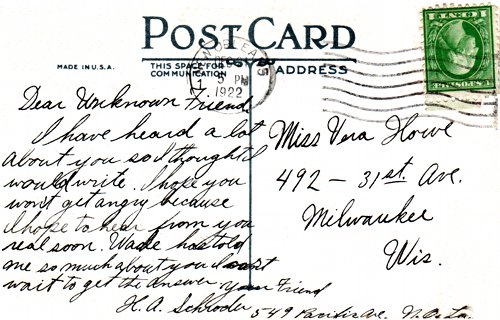 POST CARD
MADE IN U.S.A.
THIS SPACE FOR
COMMUNICATION
ADDRESS
DEC
1
5 PM
1922
Dear Unknown Friend
I have heard a lot
about you so I thought I
would write. I hope you
won't get angry because
I hope to hear from you
real soon. Wade has told
me so much about you I can't
wait to get the answer
Your Friend
H.A. Schroder
549 Pacific Ave. N.O. La.
Miss Vera Howe
492 – 31st Ave.
Milwaukee
Wis.